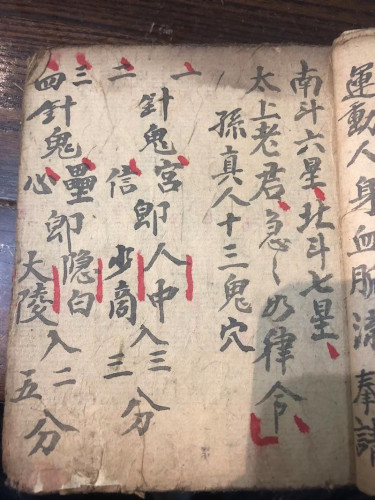 運動人身血脈流奉請
南斗六星北斗七星
太上老君急々如律令
孫真人十三鬼穴
一針鬼宮郎人中入三分
二信少商三
三針鬼壘郎隐白入二分
四心大陵五